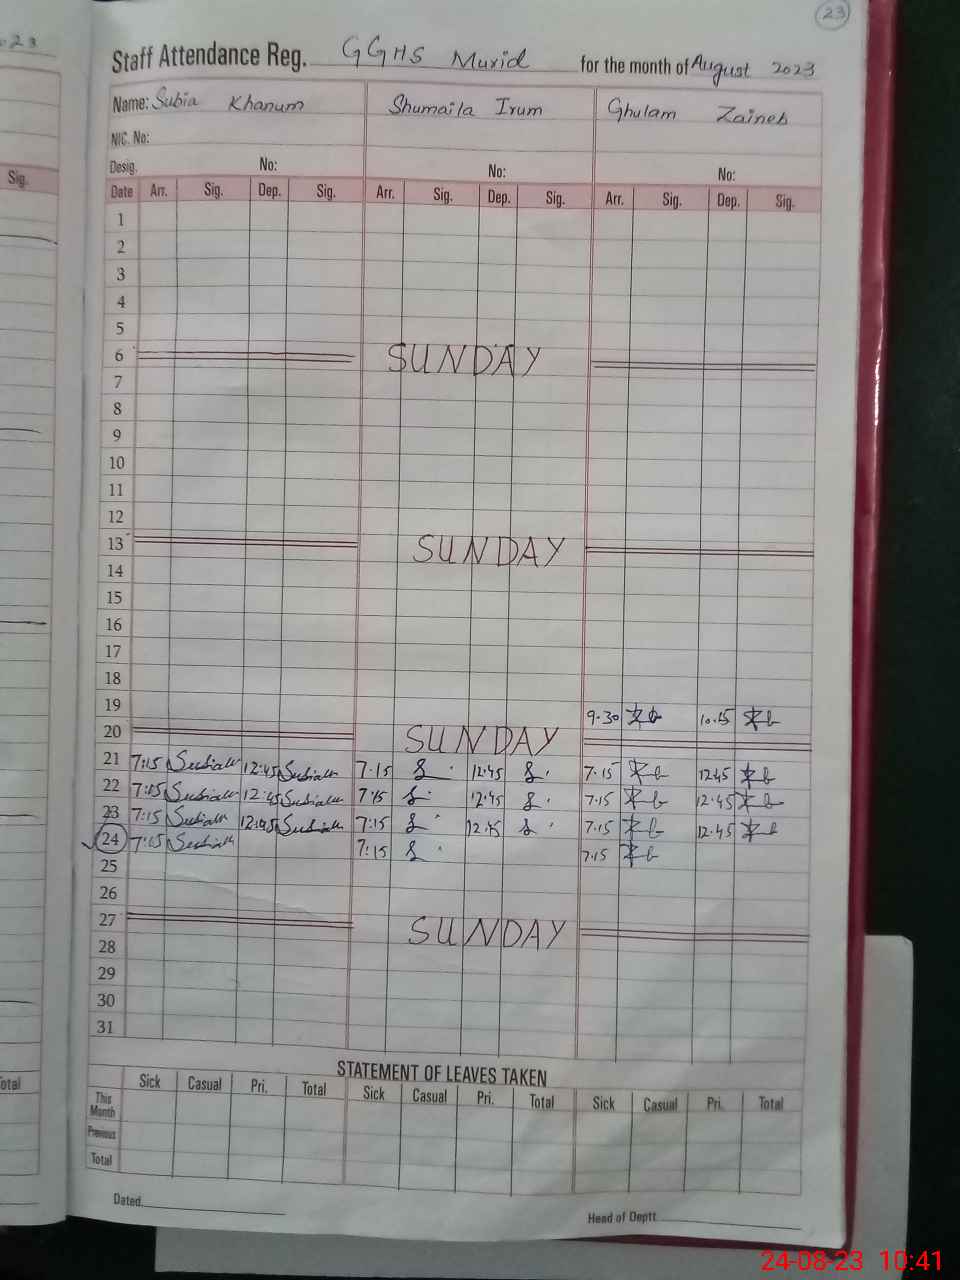 023
23
Staff Attendance Reg. GGHS Murid for the month of August 2023
Name: Subia Khanum Shumaila Irum Ghulam Zaineb
NIC. No:
Desig. No: No: No:
Sig. Date Arr. Sig. Dep. Sig. Arr. Sig. Dep. Sig. Arr. Sig. Dep. Sig.
1
2
3
4
5
6 SUNDAY
7
8
9
10
11
12
13 SUNDAY
14
15
16
17
18
19 9.30 10.15
20 SUNDAY
21 7:15 12:45 7.15 12.45 7.15 12.45
22 7:15 12:45 7.15 12.45 7.15 12.45
23 7:15 12:45 7:15 12.45 7.15 12.45
24 7:15 7:15 7.15
25
26
27 SUNDAY
28
29
30
31
STATEMENT OF LEAVES TAKEN
otal Sick Casual Pri. Total Sick Casual Pri. Total Sick Casual Pri. Total
This Month
Previous
Total
Dated
Head of Deptt.
24-08-23 10:41